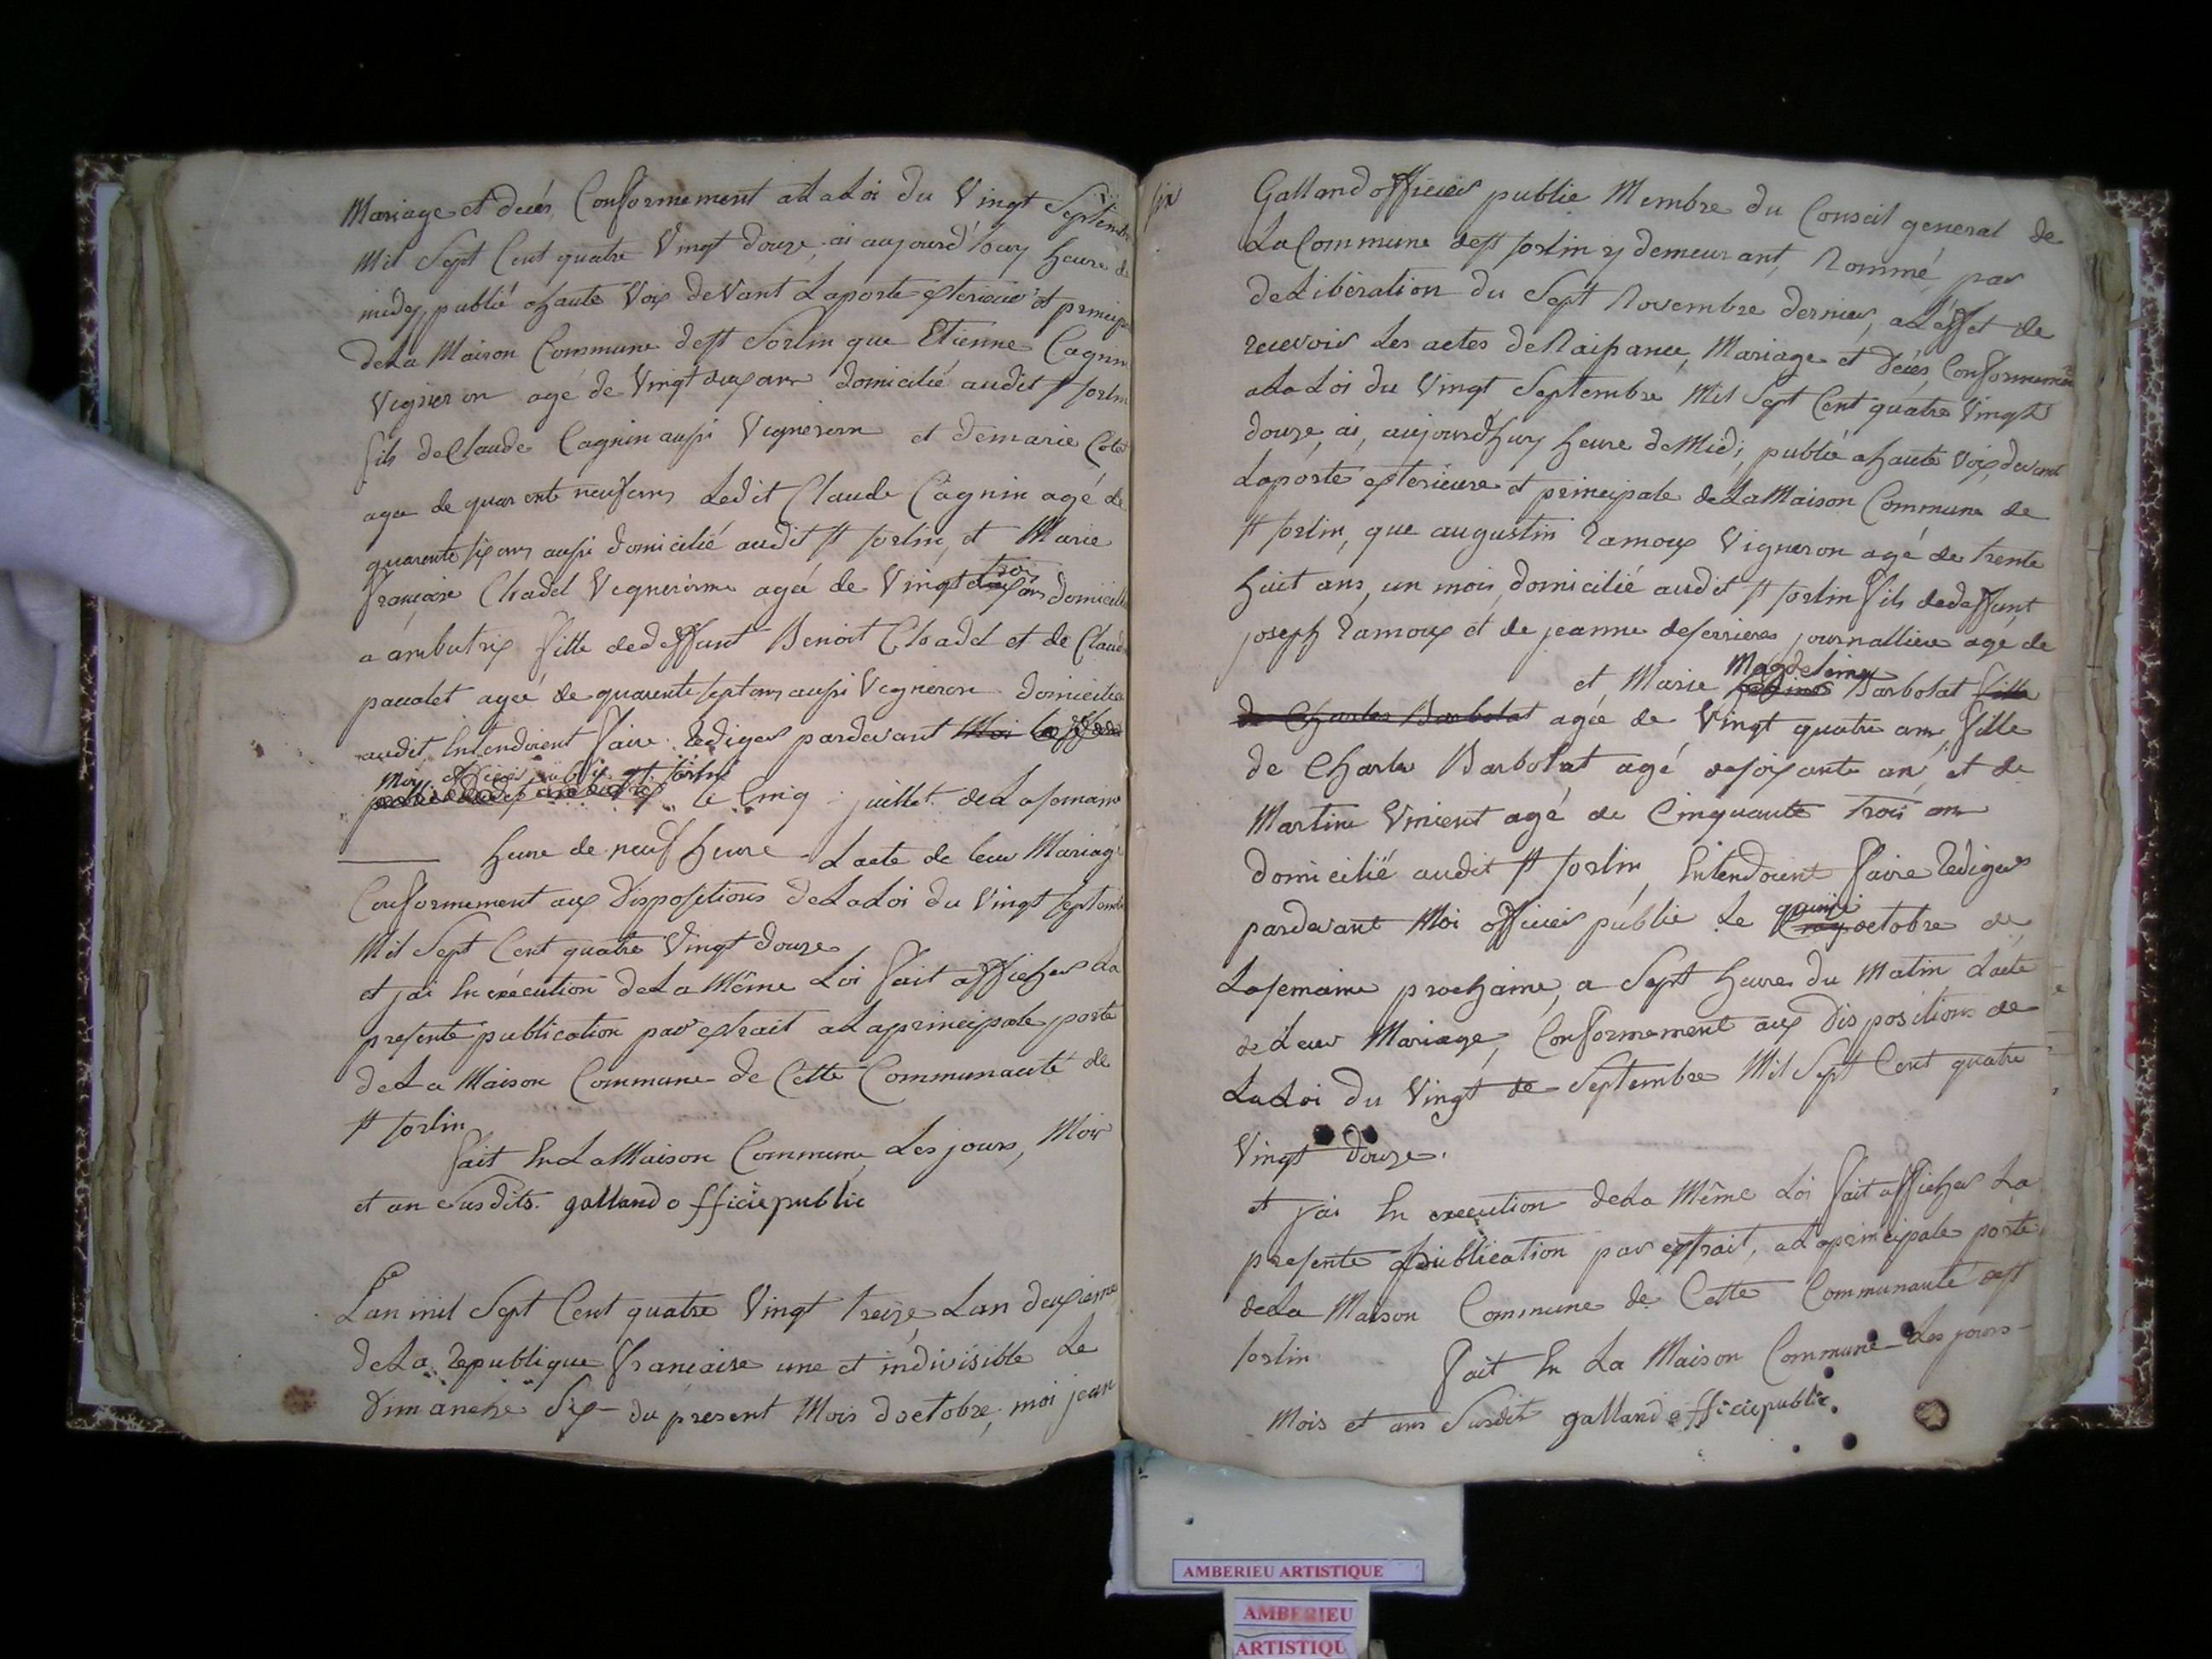 Mariage et décès Conformement a La Loi du Vingt Septembre
Mil Sept Cent quatre Vingt douze, ai aujourd'huy heure de
midy, publié a haute Voix devant La porte exterieure et principa
de La Maison Commune de St Sorlin que Etienne Cagnin
Vigneron agé de Vingt deux ans domicilié audit St Sorlin
fils de Claude Cagnin aussi Vigneron et de marie
agée de quarente neuf ans Ledit Claude Cagnin agé de
quarente six ans aussi domicilié audit St Sorlin, et Marie
françoise Chadel Vigneronne agée de Vingt trois ans domiciliée
a ambutrix fille de deffunt Benoit Chadel et de Claud
agée de quarente sept ans aussi Vigneron domiciliée
audit, Entendoient faire Rediger pardevant Moi
Moy officier public St Sorlin
le Cinq juillet de La semaine
heure de neuf heure L'acte de leur Mariage
Conformement aux Dispositions de La Loi du Vingt septembre
Mil Sept Cent quatre Vingt Douze
et jai En exécution de La Même Loi fait afficher La
presente publication par extrait a La principale porte
de La Maison Commune de Cette Communauté de
St Sorlin
fait En La Maison Commune, Les jours, Mois
et an Susdits. galland officie public
L'an mil Sept Cent quatre Vingt treize Lan deuxieme
de La Republique française une et indivisible Le
Dimanche Six du present Mois d'octobre, moi jean
six
Galland officier public Membre du Conseil general de
La Commune de St Sorlin y demeurant, Nommé par
deLiberation du Sept Novembre dernier, a L'effet de
recevoir Les actes de Naissance, Mariage et décès, Conformement
a La Loi du Vingt Septembre Mil Sept Cent quatre Vingt
douze, ai, aujourdhuy heure de Midi, publié a haute Voix, devant
La porte exterieure et principale de La Maison Commune de
St Sorlin, que augustin Ramoux Vigneron agé de trente
huit ans, un mois, domicilié audit St Sorlin fils de deffunt
joseph Ramoux et de jeanne deferrieres journalliere agé de
Magdeleine
et Marie Barbolat fille
de Charles Barbolat agée de Vingt quatre ans, fille
de Charles Barbolat agé de soixante an, et de
Martine Vincent agé de Cinquante trois ans
domicilié audit St Sorlin, Entendoient faire Rediger
quinze
pardevant Moi officier public Le Cinq octobre de
La semaine prochaine, a Sept heures du Matin L'acte
de Leur Mariage, Conformement aux Dispositions de
La Loi du Vingt de Septembre Mil Sept Cent quatre
Vingt Douze.
et jai En execution de La Même Loi fait afficher La
presente publication par extrait, a La principale porte
de La Maison Commune de Cette Communauté de St
Sorlin
fait En La Maison Commune Les jours
Mois et ans Susdit galland officie public.
AMBERIEU ARTISTIQUE
AMBERIEU
ARTISTIQU